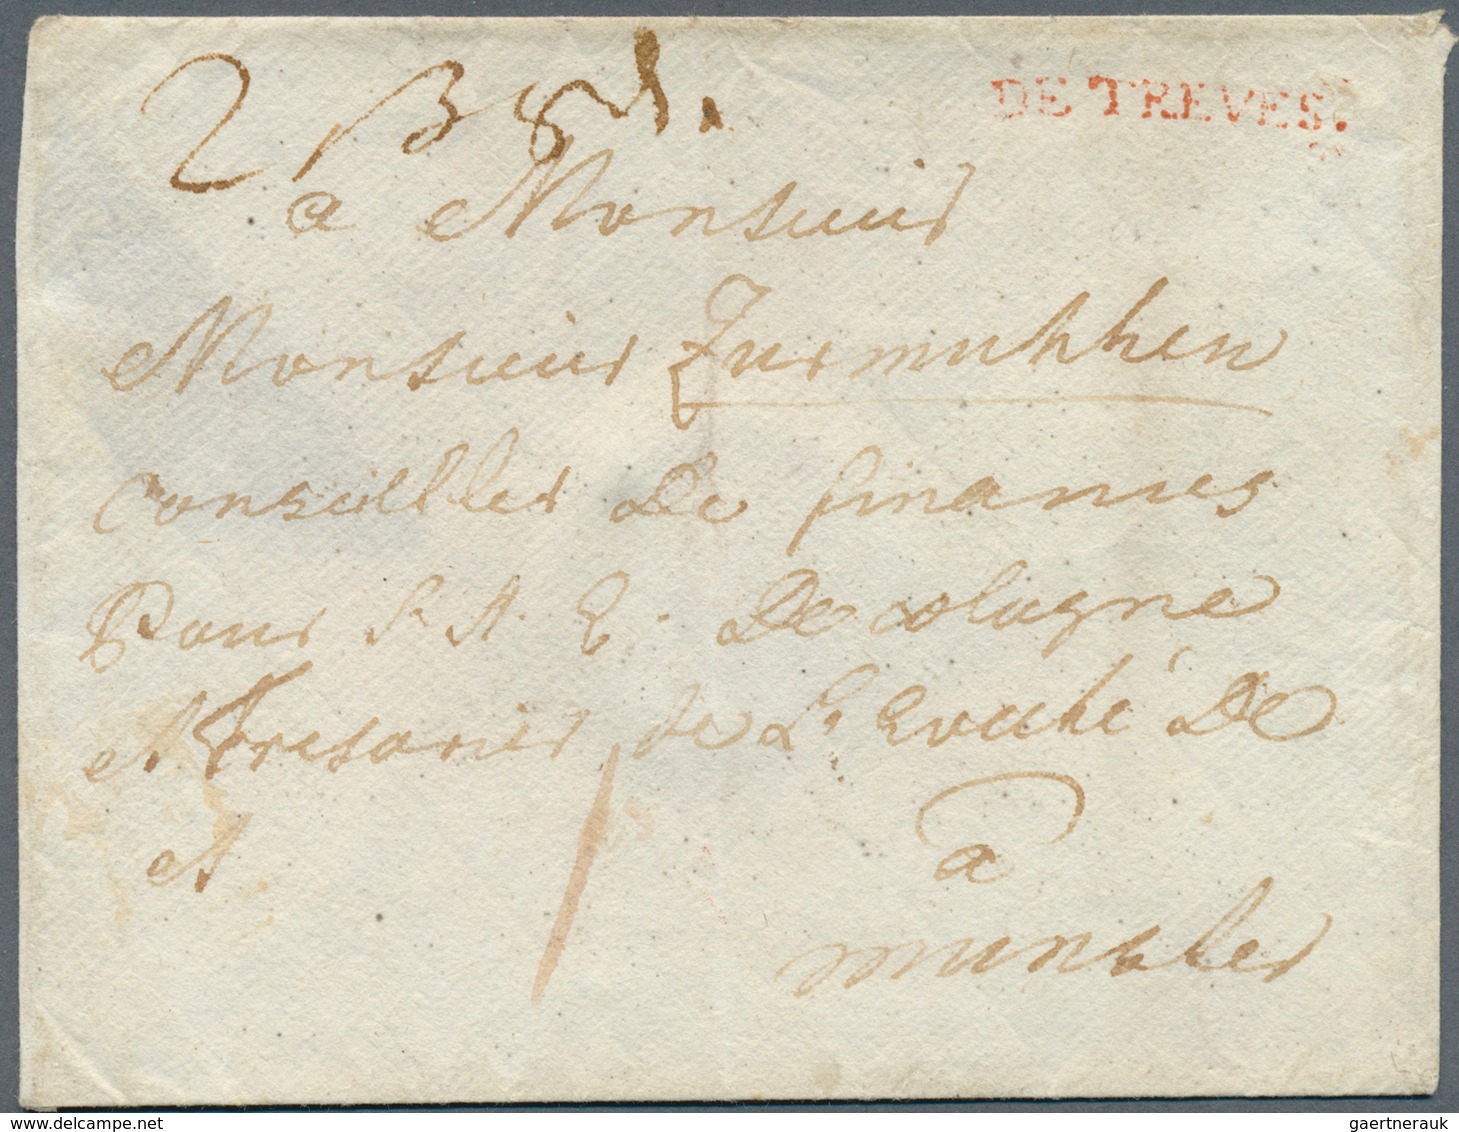 DE TREVES.
2
a Monsieur
Monsieur Zurmuhhen
Conseiller De finances
Pour S. A. E. De cologne
et Tresorier de L'Eveché De
et à
munster
delcampe.net
gaertnerauk